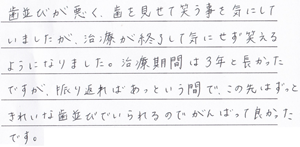 歯並びが悪く、歯を見せて笑う事を気にして
いましたが、治療が終了して気にせず笑える
ようになりました。治療期間は3年と長かった
ですが、振り返ればあっという間で、この先はずっと
きれいな歯並びでいられるのでがんばって良かった
です。